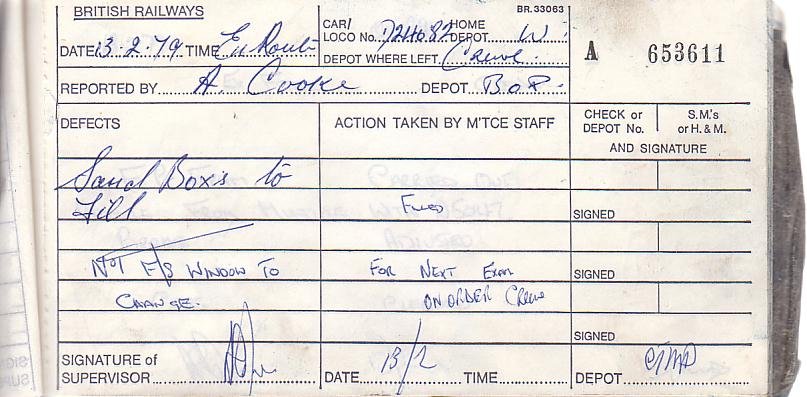 BRITISH RAILWAYS
BR.33063
DATE 13.2.79 TIME En Route
CAR/ LOCO No. D24082 HOME DEPOT W
DEPOT WHERE LEFT Crewe.
A 653611
REPORTED BY A. Cooke DEPOT B.o.P.
DEFECTS
ACTION TAKEN BY M'TCE STAFF
CHECK or DEPOT No.
S.M.'s or H. & M.
AND SIGNATURE
Sand Box's to
Fill
Filled
SIGNED
NOT F/S WINDOW TO
CHANGE.
FOR NEXT EXAM
ON ORDER Crewe
SIGNED
SIGNED
SIGNATURE of
SUPERVISOR
DATE 13/2 TIME
DEPOT